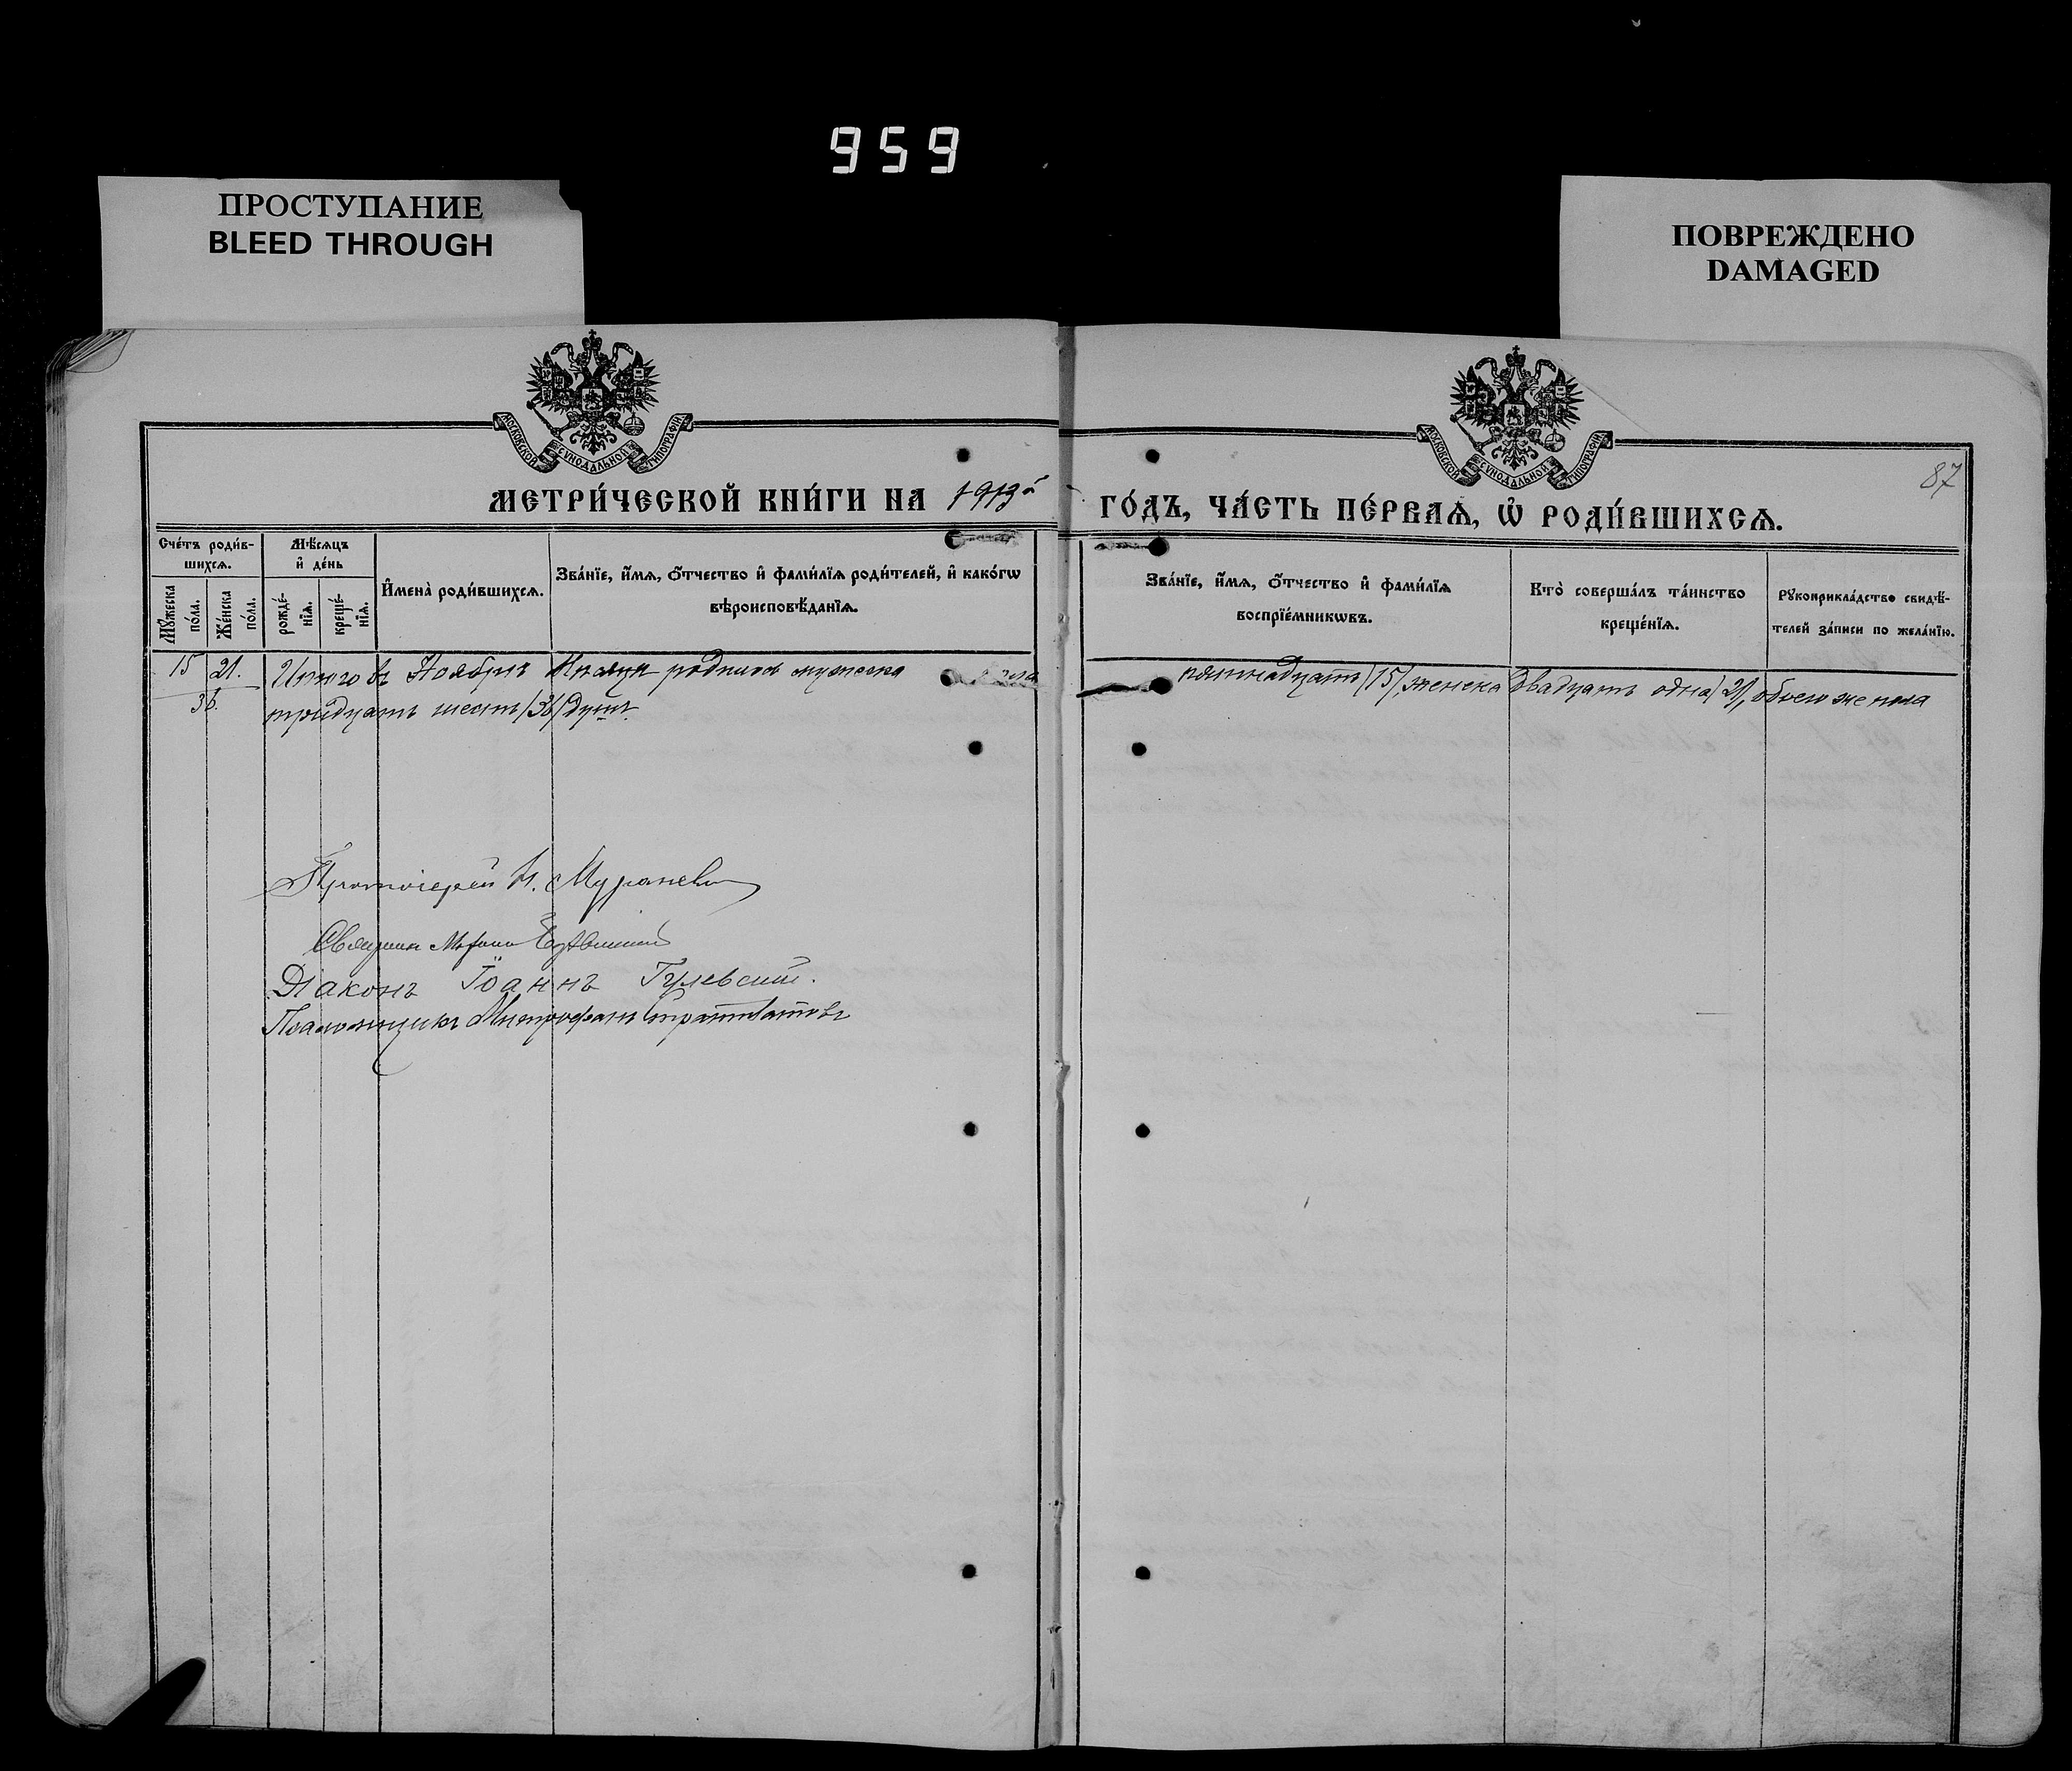 959
ПРОСТУПАНИЕ
BLEED THROUGH
ПОВРЕЖДЕНО
DAMAGED
МОСКОВСКОЙ СУНОДАЛЬНОЙ ТИПОГРАФІИ
МОСКОВСКОЙ СУНОДАЛЬНОЙ ТИПОГРАФІИ
87
МЕТРИ́ЧЕСКОЙ КНИ́ГИ НА 1913й ГО́ДЪ, ЧА́СТЬ ПЕ́РВАѦ, Ѡ҆ РОДИ́ВШИХСѦ.
Сче́тъ роди́в-
шихсѧ.
Мꙋ́жеска
по́ла.
Же́нска
по́ла.
Мѣ́сѧцъ
и҆ де́нь
рожде́-
нїѧ.
креще́-
нїѧ.
И҆мена̀ роди́вшихсѧ.
Зва́нїе, и҆́мѧ, ѻ҆́тчество и҆ фами́лїѧ роди́телей, и҆ како́гѡ
вѣроисповѣ́данїѧ.
Зва́нїе, и҆́мѧ, ѻ҆́тчество и҆ фами́лїѧ
воспрїе́мникѡвъ.
Кто̀ соверша́лъ та́инство
креще́нїѧ.
Рꙋкоприкла́дство свидѣ́-
телей за́писи по жела́нїю.
15 21. Итого въ Ноябрѣ мѣсяцѣ родилось мужеска пола пятнадцать /15/, женска двадцать одна /21/, обоего же пола
36. тридцать шесть /36/ душъ.
Протоіерей
Священн
Діаконъ Іоаннъ Гулевскій.
Псаломщикъ Митрофанъ